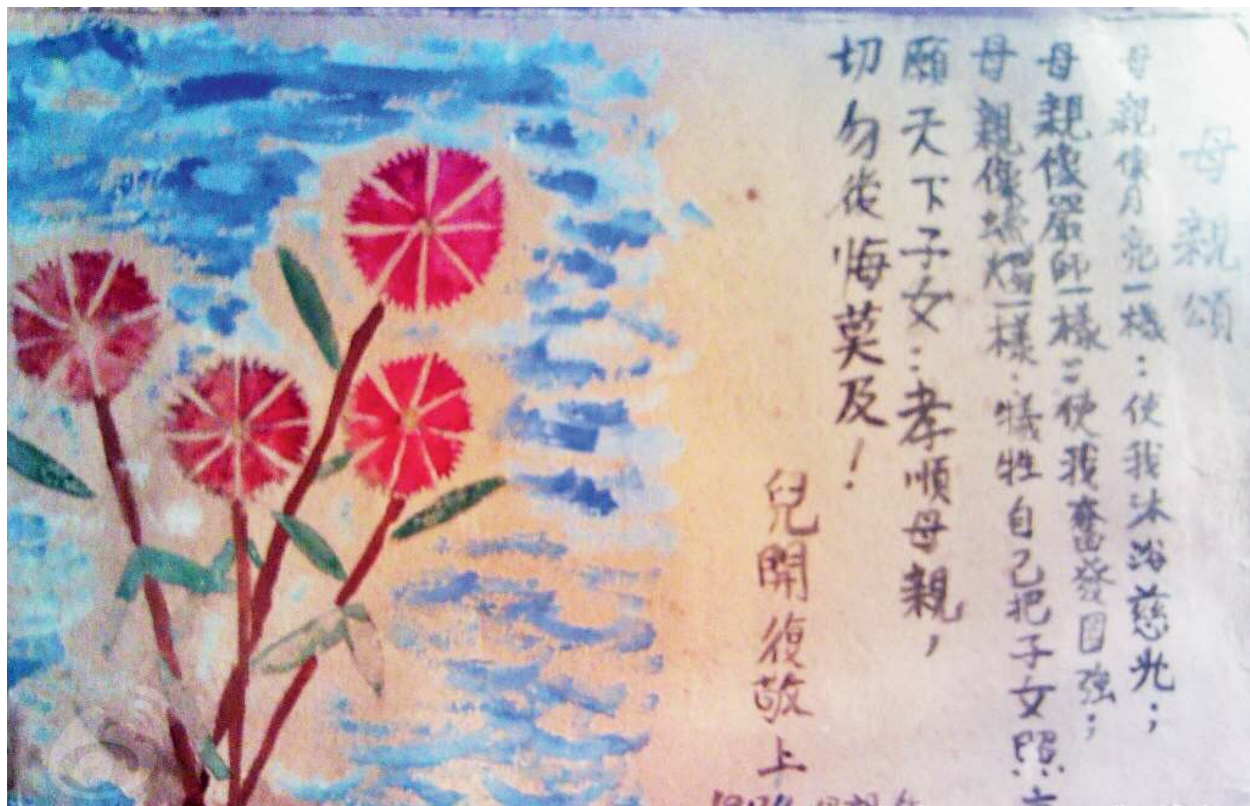 母親頌
母親像月亮一樣：使我沐浴慈光；
母親像嚴師一樣：使我奮發圖強；
母親像蠟燭一樣．犧牲自己把子女照
願天下子女：孝順母親，
切勿後悔莫及！
兒開復敬上